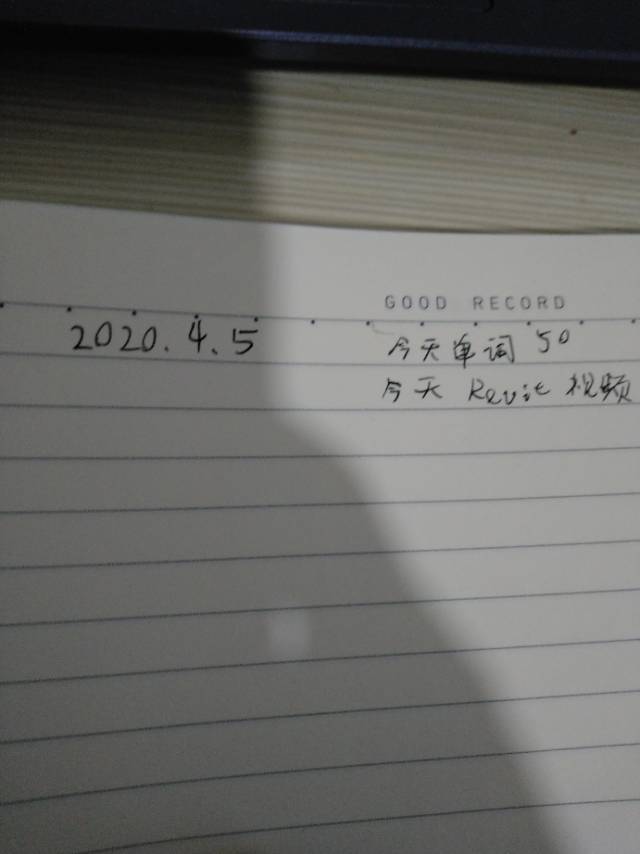 GOOD RECORD
2020.4.5 今天单词 50
今天 Revit 视频